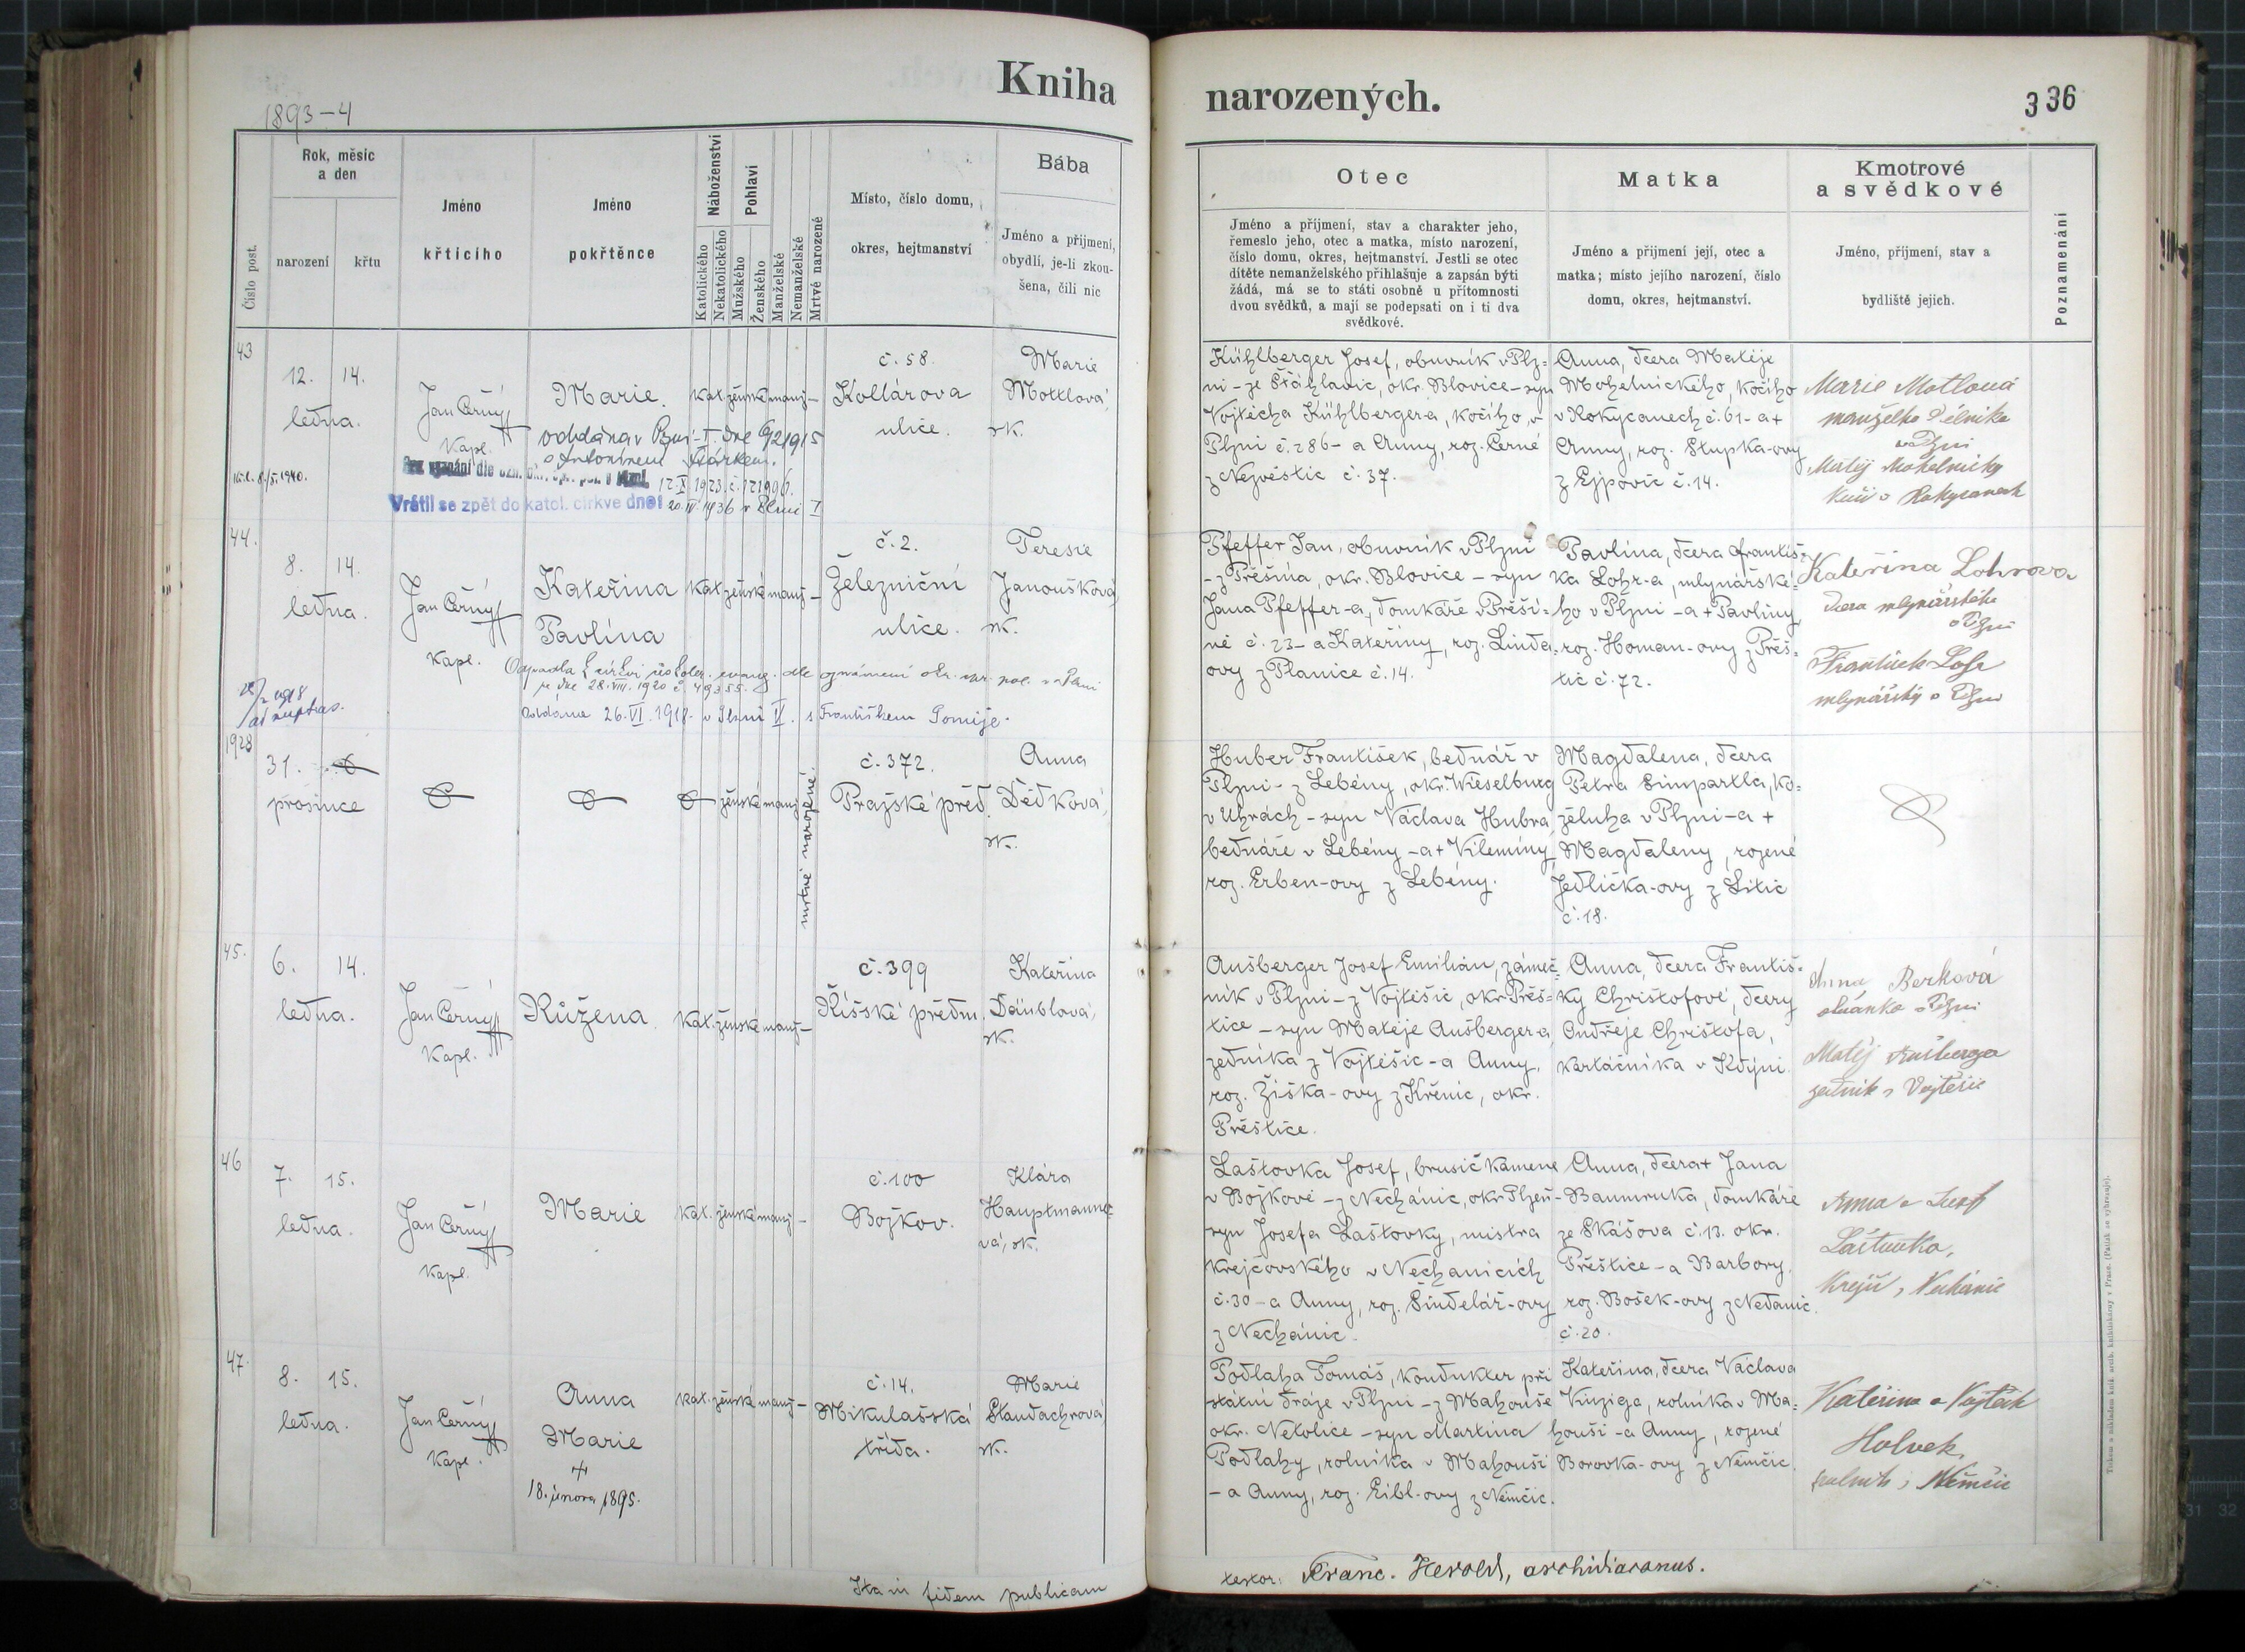 1893-4
Kniha
narozených.
336
Číslo post.
Rok, měsíc
a den
narození
křtu
Jméno
křtícího
Jméno
pokřtěnce
Náboženství
Katolického
Nekatolického
Pohlaví
Mužského
Ženského
Manželské
Nemanželské
Mrtvě narozené
Místo, číslo domu,
okres, hejtmanství
Bába
Jméno a příjmení,
obydlí, je-li zkou-
šena, čili nic
Otec
Jméno a příjmení, stav a charakter jeho,
řemeslo jeho, otec a matka, místo narození,
číslo domu, okres, hejtmanství. Jestli se otec
dítěte nemanželského přihlašuje a zapsán býti
žádá, má se to státi osobně u přítomnosti
dvou svědků, a mají se podepsati on i ti dva
svědkové.
Matka
Jméno a příjmení její, otec a
matka; místo jejího narození, číslo
domu, okres, hejtmanství.
Kmotrové
a svědkové
Jméno, příjmení, stav a
bydliště jejich.
Poznamenání
43
12. 14.
ledna.
Jan Černý
Kapl.
Marie.
kat. ženské manž-
č. 58.
Kollárova
ulice.
Marie
Mottlová,
zk.
oddána v Plzni-I. dne 6/2 1915
s Antonínem
12.X.1923.č.121906.
Vrátil se zpět do katol. církve dne: 20.IV.1936 v Plzni I
Kühlberger Josef, obuvník v Plz-
ni - ze Šťáhlavic, okr. Blovice - syn
Vojtěcha Kühlbergera, kočího, v
Plzni č. 286 - a Anny, roz. Černé
z Nezvěstic č. 37.
Anna, dcera Matěje
Mohelnického, kočího
v Rokycanech č. 61 - a +
Anny, roz. Stupka-ovy
z Ejpovic č. 14.
Marie Motlová
manželka dělníka
v Plzni
Matěj Mohelnický
kočí v Rokycanech
44.
8. 14.
ledna.
Jan Černý
Kapl.
Kateřina
Pavlína
kat. ženské manž-
č. 2.
Železniční
ulice.
Teresie
Janoušková,
zk.
Odpadla k církvi českobr. evang. dle oznámení okr. spr. pol. v Plzni
ze dne 28.VIII.1920 č. 49355.
oddána 26.VI.1918. v Plzni II. s Františkem Tomije.
ad nuptias.
Pfeffer Jan, obuvník v Plzni
- z Přešína, okr. Blovice - syn
Jana Pfeffer-a, domkáře v Přeší-
ně č. 23 - a Kateřiny, roz. Linda-
ovy z Planice č. 14.
Pavlína, dcera Františ-
ka Lohr-a, mlynářské-
ho v Plzni - a + Pavlíny
roz. Homan-ovy z Přeš-
tic č. 72.
Kateřina Lohrova
dcera mlynářského
v Plzni
František Lohr
mlynářský v Plzni
1928
31.
prosince
ženské manž
mrtvě narozené.
č. 372.
Pražské před.
Anna
Dědková,
zk.
Huber František, bednář v
Plzni - z Lebény, okr. Wieselburg
v Uhrách - syn Václava Hubra
bednáře v Lebény - a + Vilemíny
roz. Erben-ovy z Lebény.
Magdalena, dcera
Petra Simpartla, ko-
želuha v Plzni - a +
Magdaleny, rozené
Jedlička-ovy z Litic
č. 18.
45.
6. 14.
ledna.
Jan Černý
Kapl.
Růžena.
kat. ženské manž-
č. 399
Říšské předm.
Kateřina
Däublová,
zk.
Aušberger Josef Emilián, zámeč-
ník v Plzni - z Vojtěšic, okr. Přeš-
tice - syn Matěje Aušbergera,
zedníka z Vojtěšic - a Anny,
roz. Žiška-ovy z Křenic, okr.
Přeštice.
Anna, dcera Františ-
ky Christofové, dcery
Ondřeje Christofa,
kartáčníka v Kdýni.
Anna Berková
v Plzni
Matěj Aušberger
zedník z Vojtěšic
46
7. 15.
ledna.
Jan Černý
Kapl.
Marie
kat. ženské manž-
č. 100
Božkov.
Klára
Hauptmanno-
vá, zk.
Laštovka Josef, brusič kamene
v Božkově - z Nechánic, okr. Plzeň -
syn Josefa Laštovky, mistra
krejčovského v Nechanicích
č. 30 - a Anny, roz. Šindelář-ovy
z Nechánic.
Anna, dcera + Jana
Baumruka, domkáře
ze Skášova č. 13. okr.
Přeštice - a Barbory,
roz. Bošek-ovy z Nedanic
č. 20.
Anna a Josef
Laštovka,
krejčí, Nechánic
47.
8. 15.
ledna.
Jan Černý
Kapl.
Anna
Marie
+
18. února 1895.
kat. ženské manž-
č. 14.
Mikulašská
třída.
Marie
Standachrová,
zk.
Podlaha Tomáš, kondukter při
státní dráze v Plzni - z Mahouše
okr. Netolice - syn Martina
Podlahy, rolníka v Mahouši
- a Anny, roz. Eibl-ovy z Němčic.
Kateřina, dcera Václava
Vinziga, rolníka v Ma-
houši - a Anny, rozené
Borovka-ovy z Němčic.
Kateřina a Vojtěch
Holvek,
rolník z Němčic
Ita in fidem publicam
testor: Franc. Herold, archidiaconus.